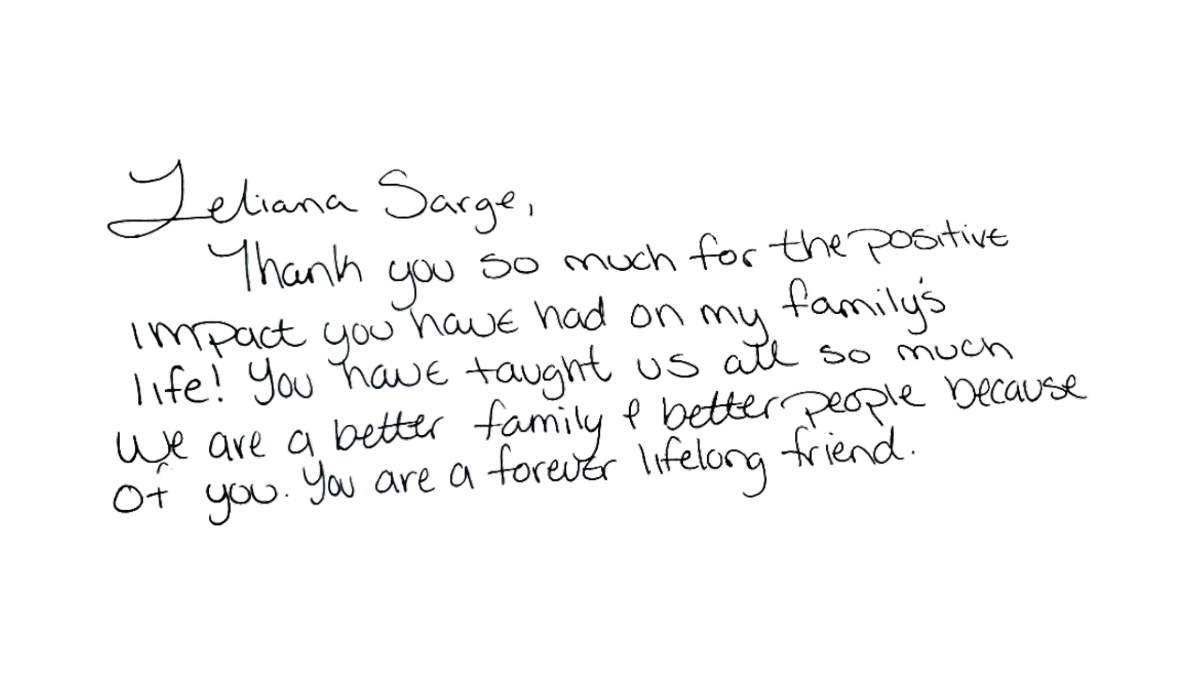 Jeliana Sarge,
Thank you so much for the positive
impact you have had on my family's
life! You have taught us all so much
We are a better family & better people because
of you. You are a forever lifelong friend.